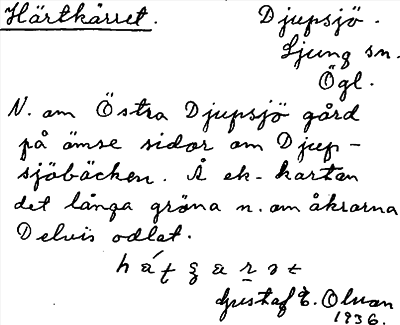 Härtkärret.
Djupsjö.
Ljung sn.
Ögl.
N. om Östra Djupsjö gård
på ömse sidor om Djup-
sjöbäcken. Å ek-kartan
det långa gröna n. om åkrarna
Delvis odlat.
Gustaf E. Olson
1936.